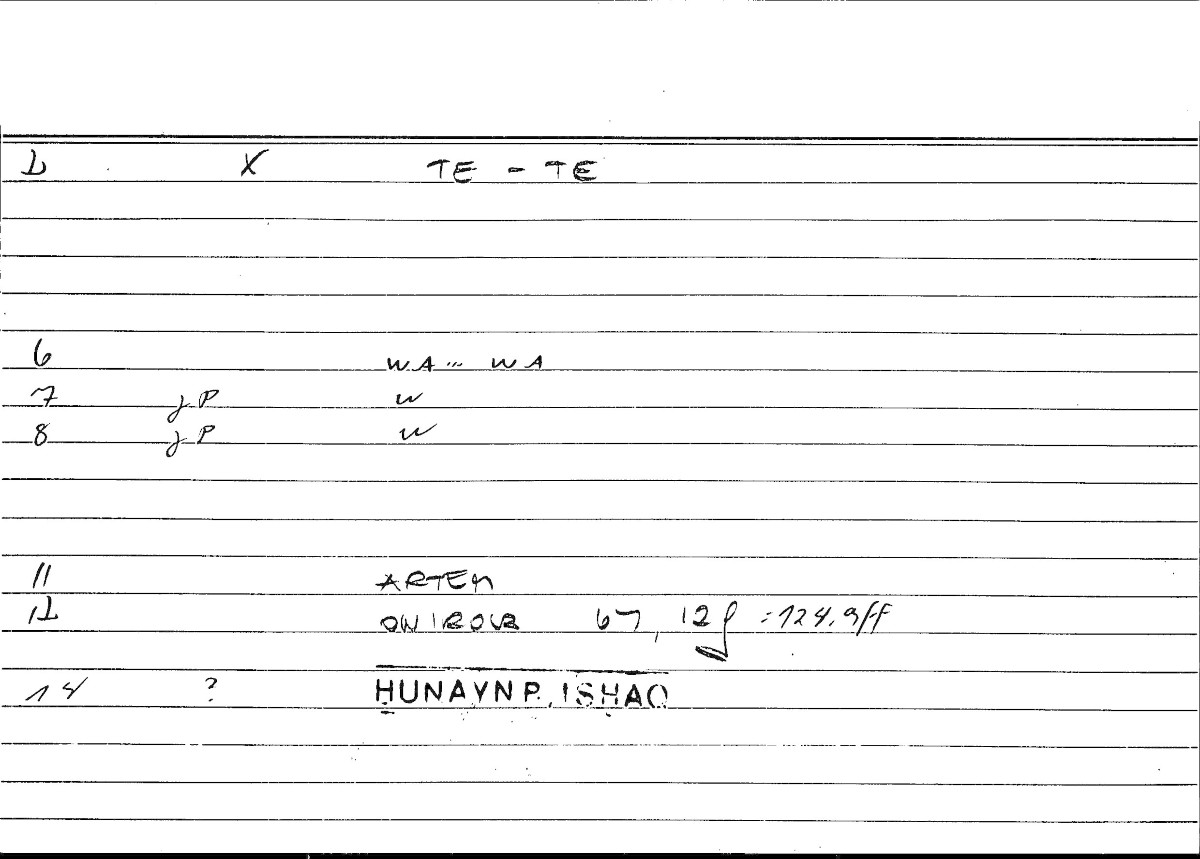 D X TE - TE
6 WA .. WA
7 gP W
8 gP W
11 ARTEM
12 ONIROCR 67, 12f = 124, 9ff
14 ? ḤUNAYN B. ISḤAQ